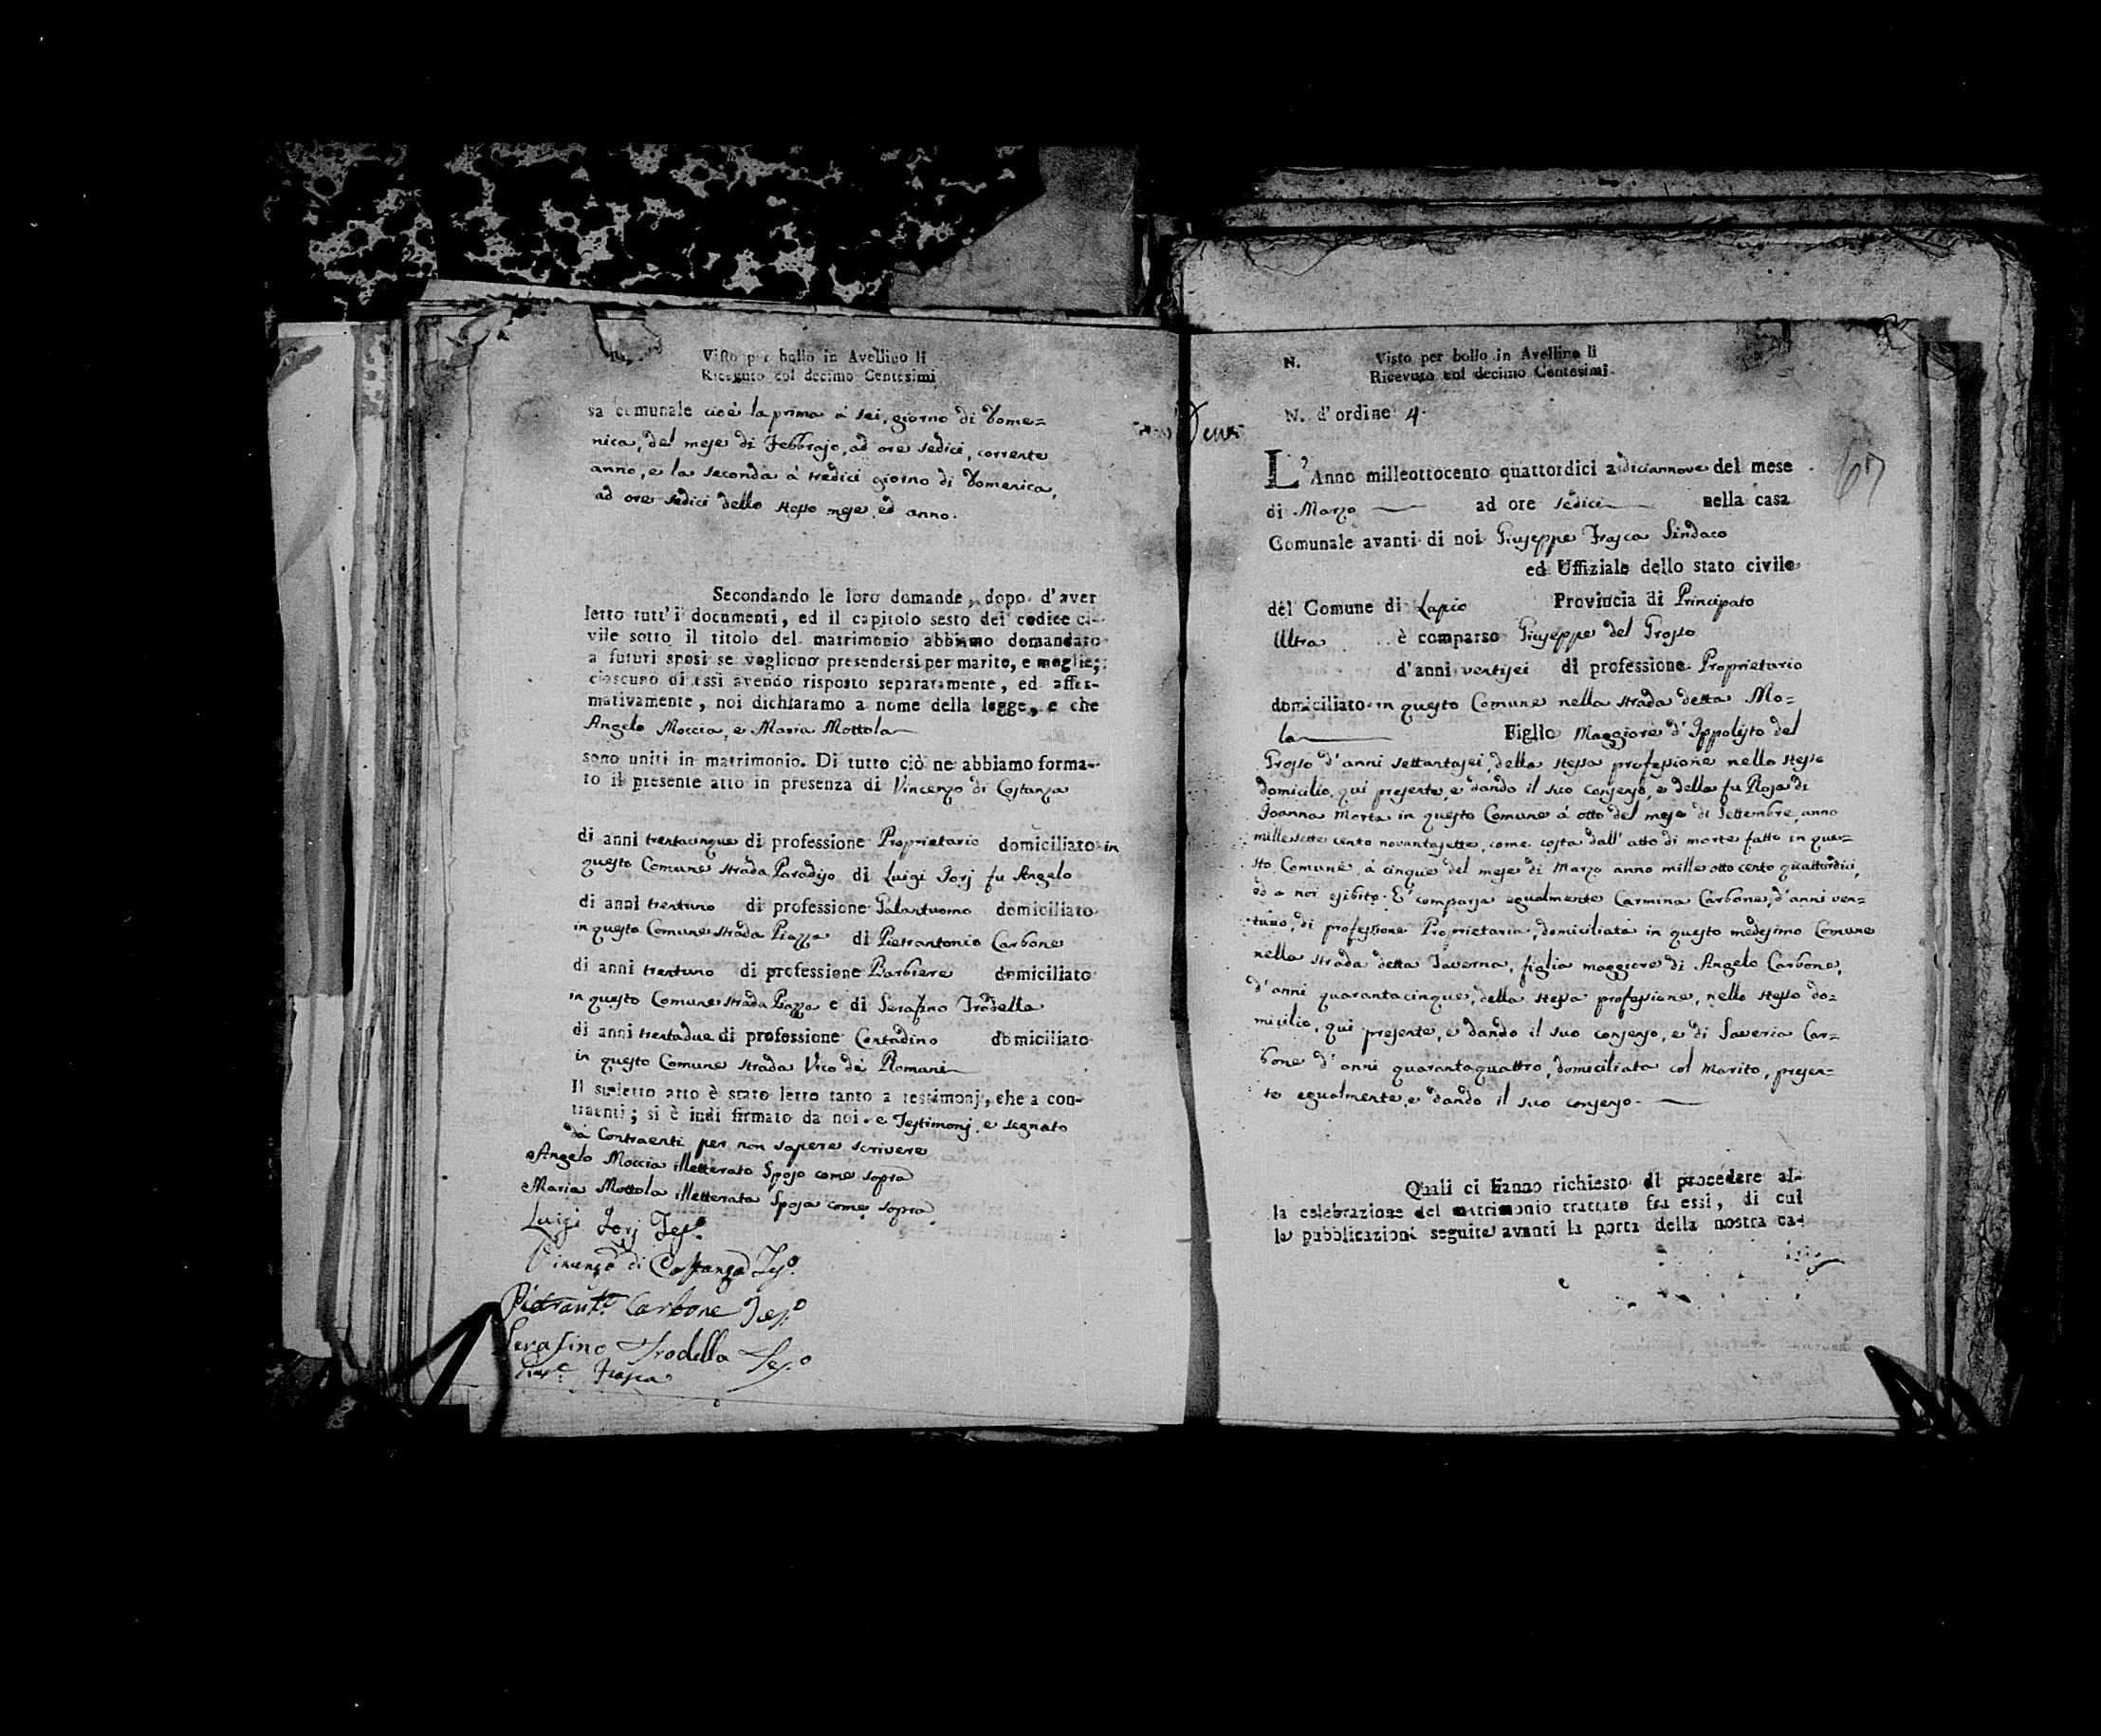 Visto per bollo in Avellino li
Ricevuto col decimo Centesimi
sa comunale cioè la prima à sei, giorno di Dome=
nica, del mese di Febbrajo, ad ore sedici, corrente
anno, e la seconda à tredici giorno di Domenica,
ad ore sedici dello stesso mese, ed anno.
Secondando le loro domande, dopo d'aver
letto tutt'i documenti, ed il capitolo sesto del codice ci-
vile sotto il titolo del matrimonio abbiamo domandato
a futuri sposi se vogliono presendersi per marito, e moglie;
ciascuno di essi avendo risposto separatamente, ed affer-
mativamente, noi dichiaramo a nome della legge, e che
Angelo Moccia, e Maria Mottola
sono uniti in matrimonio. Di tutto ciò ne abbiamo forma-
to il presente atto in presenza di Vincenzo di Costanza
di anni trentacinque di professione Proprietario domiciliato in
questo Comune strada Paradiso di Luigi Jorj fu Angelo
di anni trentuno di professione Galantuomo domiciliato
in questo Comune strada Piazza di Pietrantonio Carbone
di anni trentuno di professione Barbiere domiciliato
in questo Comune strada Piazza e di Serafino Trodella
di anni trentadue di professione Contadino domiciliato
in questo Comune strada Vico de Romani
Il suddetto atto è stato letto tanto a testimonj, che a con-
traenti; si è indi firmato da noi. e Testimonj, e segnato
da Contraenti per non sapere scrivere
Angelo Moccia illetterato Sposo come sopra
Maria Mottola illetterata Sposa come sopra
Luigi Jorj Tes.o
Vincenzo di Costanza Tes.o
Pietrant.o Carbone Tes.o
Serafino Trodella Tes.o
Frasca
N.
Visto per bollo in Avellino li
Ricevuto col decimo Centesimi
N. d'ordine 4.
67
L'Anno milleottocento quattordici a diciannove del mese
di Marzo ad ore sedici nella casa
Comunale avanti di noi Giuseppe Frasca Sindaco
ed Uffiziale dello stato civile
del Comune di Lapio Provincia di Principato
Ultra è comparso Giuseppe del Grosso
d'anni ventisei di professione Proprietario
domiciliato in questo Comune nella strada detta Mo=
la Figlio Maggiore d'Ippolisto del
Grosso d'anni settantasei, della stessa professione nello stesso
domicilio, qui presente, e dando il suo consenso, e della fu Rosa di
Joanna morta in questo Comune à otto del mese di Settembre, anno
millesette cento novantasette, come costa dall'atto di morte fatto in que=
sto Comune, à cinque del mese di Marzo anno mille otto cento quattordici,
ed a noi esibito. E' comparsa egualmente Carmina Carbone, d'anni ven=
tuno, di professione Proprietaria, domiciliata in questo medesimo Comune
nella strada detta Taverna, figlia maggiore di Angelo Carbone,
d'anni quarantacinque, della stessa professione, nello stesso do=
micilio, qui presente, e dando il suo consenso, e di Saveria Car=
bone d'anni quarantaquattro, domiciliata col Marito, presen=
te egualmente, e dando il suo consenso.
Quali ci hanno richiesto di procedere al-
la celebrazione del matrimonio trattato fra essi, di cui
le pubblicazioni seguite avanti la porta della nostra ca-